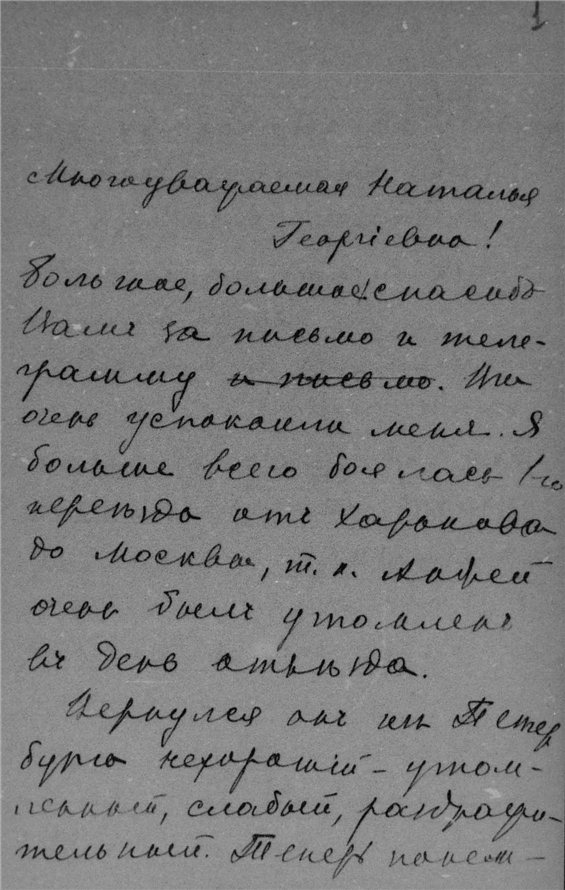 1
Многоуважаемая Наталья
Георгіевна!
Большое, большое спасибо
Вамъ за письмо и теле-
грамму и письмо. Вы
очень успокоили меня. Я
больше всего боялась 1-го
переѣзда отъ Харькова
до Москвы, т. к. Андрей
очень былъ утомленъ
въ день отъѣзда.
Вернулся онъ изъ Петер
бурга нехорошій – утом-
ленный, слабый, раздражи-
тельный. Теперь понем-